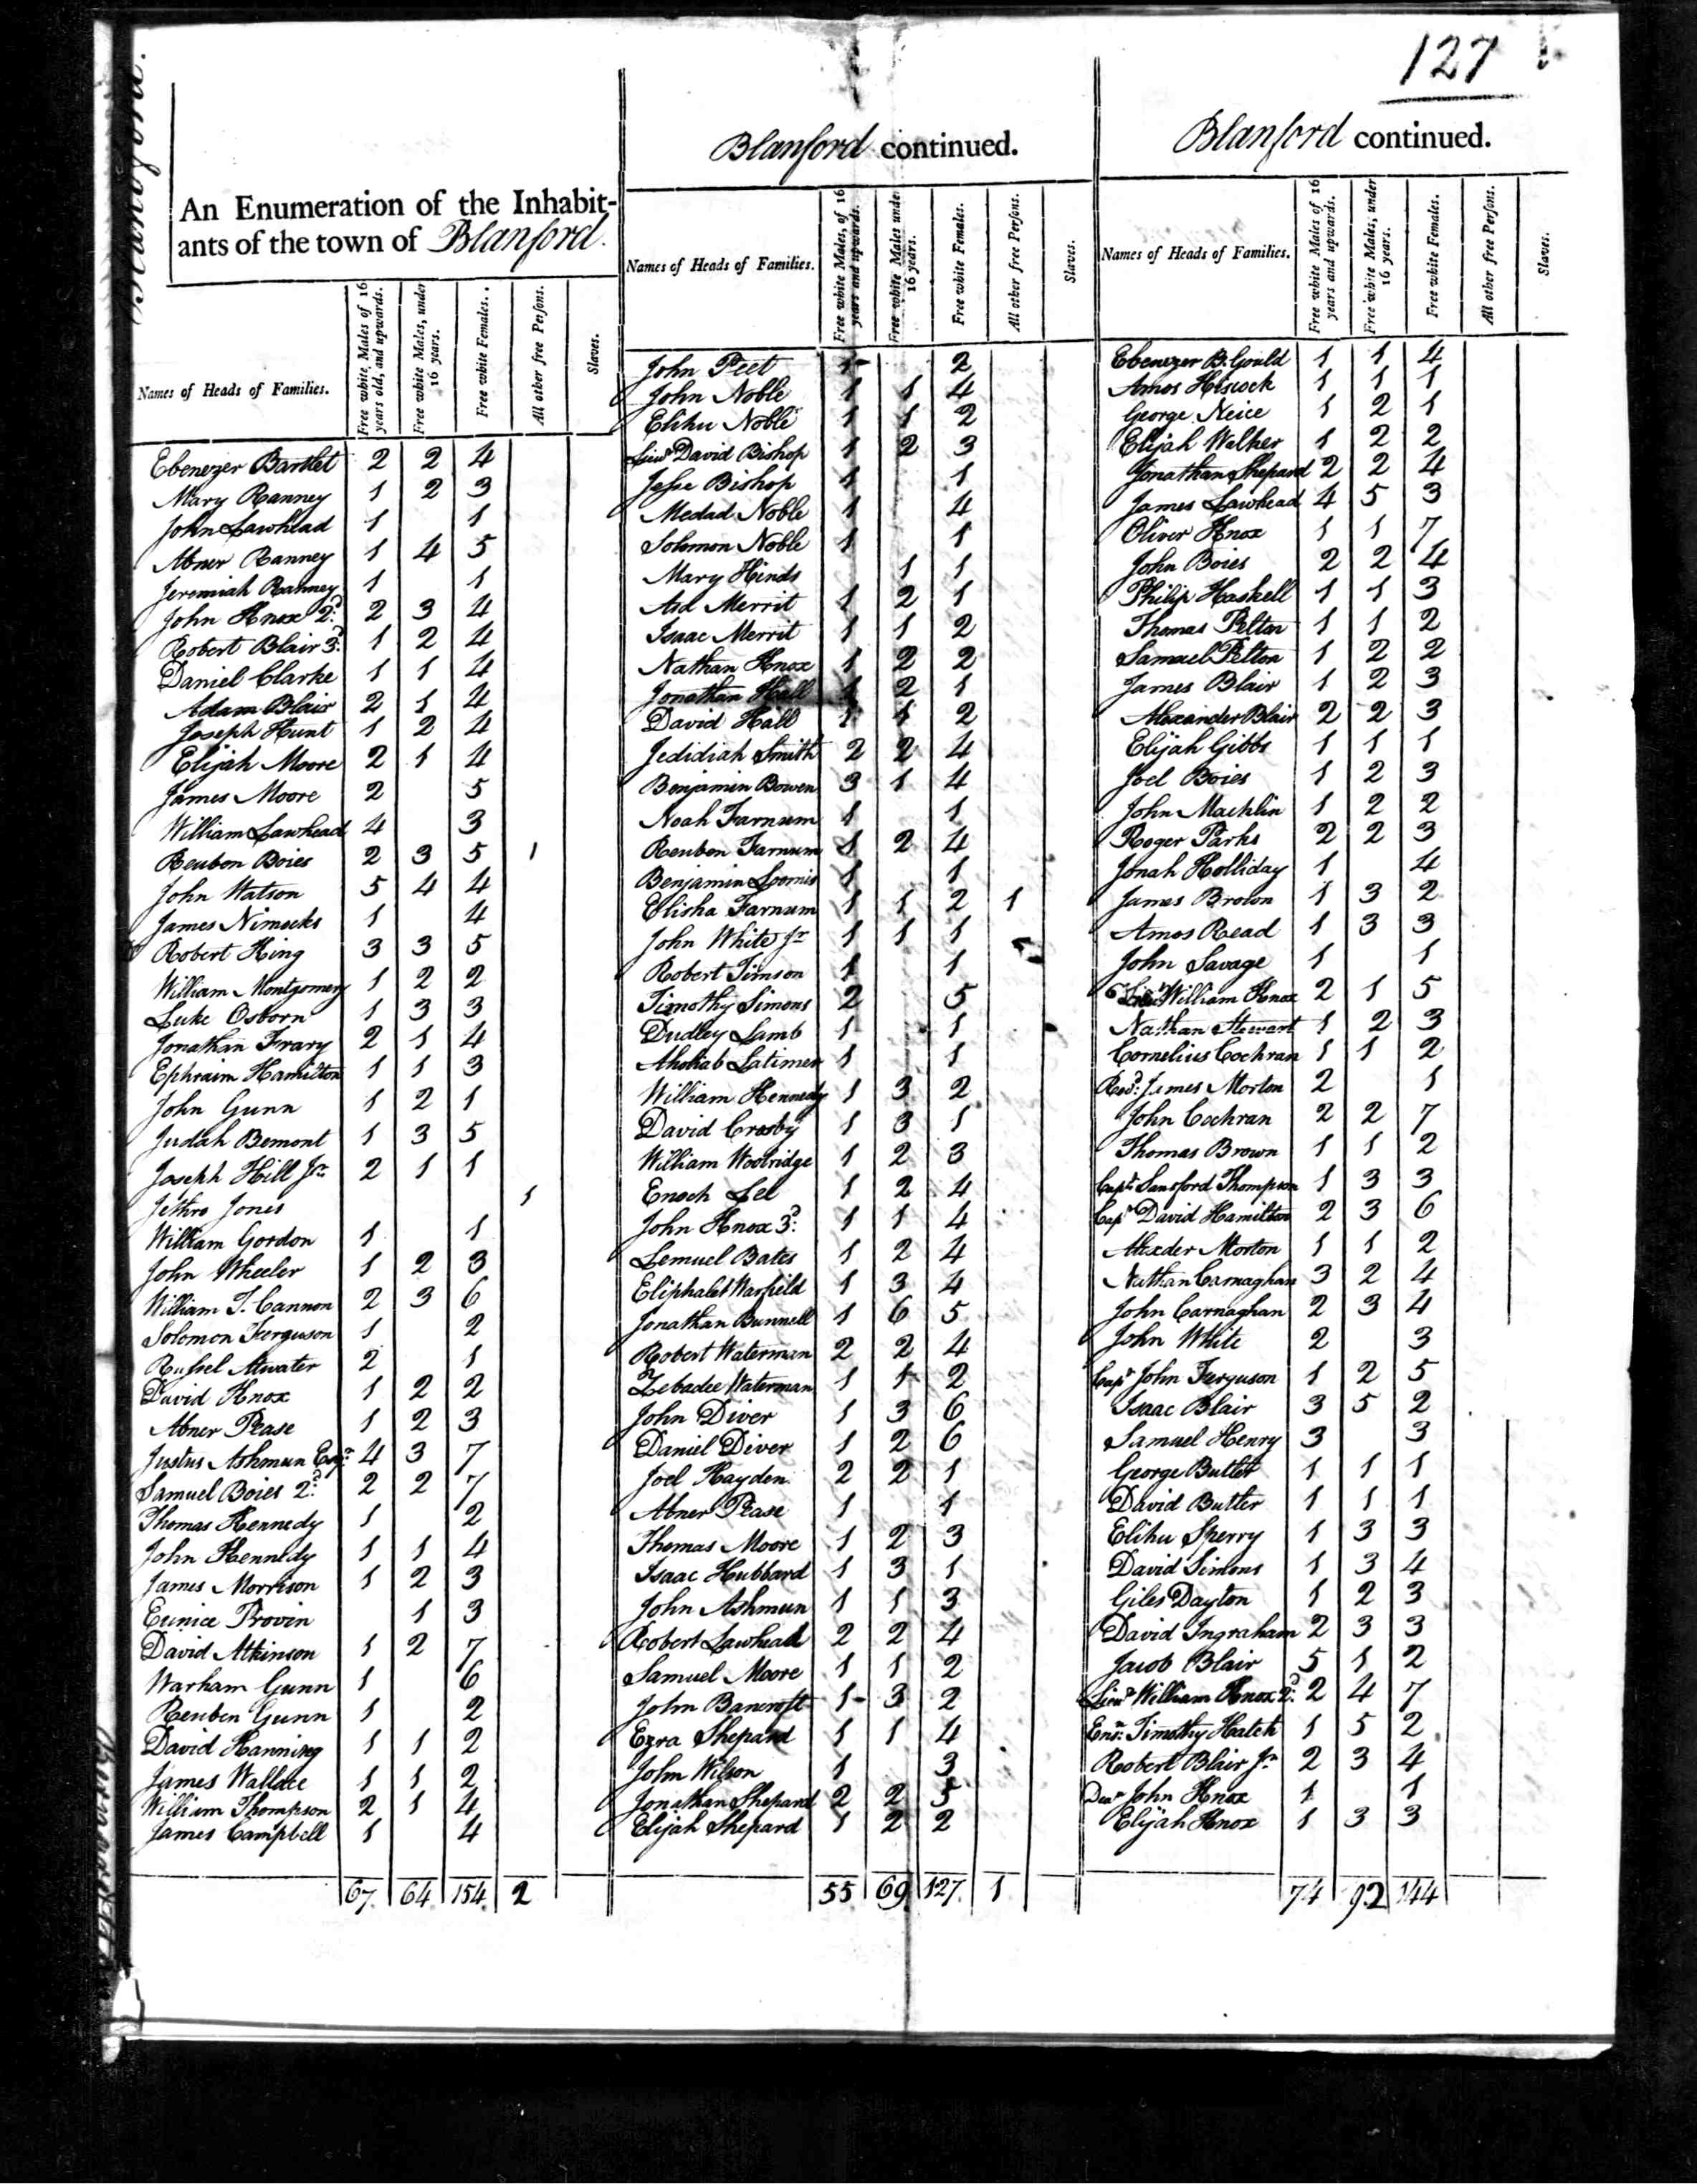 127
Blanford.
An Enumeration of the Inhabit-
ants of the town of Blanford.
Names of Heads of Families.
Free white Males of 16 years old, and upwards.
Free white Males, under 16 years.
Free white Females.
All other free Persons.
Slaves.
Ebenezer Bartlet 2 2 4
Mary Ranney 1 2 3
John Lawhead 1 1
Abner Ranney 1 4 5
Jeremiah Ranney 1 1
John Knox 2d. 2 3 4
Robert Blair 3d. 1 2 4
Daniel Clarke 1 1 4
Adam Blair 2 1 4
Joseph Hunt 1 2 4
Elijah Moore 2 1 4
James Moore 2 5
William Lawhead 4 3
Reuben Boies 2 3 5 1
John Watson 5 4 4
James Nimocks 1 4
Robert King 3 3 5
William Montgomery 1 2 2
Luke Osborn 1 3 3
Jonathan Frary 2 1 4
Ephraim Hamilton 1 1 3
John Gunn 1 2 1
Judah Bemont 1 3 5
Joseph Hill Jr. 2 1 1
Jethro Jones 1
William Gordon 1 1
John Wheeler 1 2 3
William T. Cannon 2 3 6
Solomon Ferguson 1 2
Russel Atwater 2 1
David Knox 1 2 2
Abner Pease 1 2 3
Justus Ashmun Esqr. 4 3 7
Samuel Boies 2d. 2 2 7
Thomas Kennedy 1 2
John Kennedy 1 1 4
James Morrison 1 2 3
Eunice Provin 1 3
David Atkinson 1 2 7
Warham Gunn 1 6
Reuben Gunn 1 2
David Kanning 1 1 2
James Wallace 1 1 2
William Thompson 2 1 4
James Campbell 1 4
67 64 154 2
Blanford continued.
Names of Heads of Families.
Free white Males, of 16 years and upwards.
Free white Males under 16 years.
Free white Females.
All other free Persons.
Slaves.
John Peet 1 2
John Noble 1 1 4
Elihu Noble 1 1 2
Lieut David Bishop 1 2 3
Jesse Bishop 1 1
Medad Noble 1 4
Solomon Noble 1 1
Mary Hinds 1 1
Asd Merrit 1 2 1
Isaac Merrit 1 1 2
Nathan Knox 1 2 2
Jonathan Hall 1 2 1
David Hall 1 1 2
Jedidiah Smith 2 2 4
Benjamin Bowen 3 1 4
Noah Farnum 1 1
Reuben Farnum 1 2 4
Benjamin Loomis 1 1
Elisha Farnum 1 1 2 1
John White Jr 1 1 1
Robert Timson 1 1
Timothy Simons 2 5
Dudley Lamb 1 1
Aholiab Latimer 1 1
William Kennedy 1 3 2
David Crosby 1 3 1
William Woolridge 1 2 3
Enoch Lee 1 2 4
John Knox 3d. 1 1 4
Lemuel Bates 1 2 4
Eliphalet Warfield 1 3 4
Jonathan Bunnell 1 6 5
Robert Waterman 2 2 4
Zebadee Waterman 1 1 2
John Diver 1 3 6
Daniel Diver 1 2 6
Joel Hayden 2 2 1
Abner Pease 1 1
Thomas Moore 1 2 3
Isaac Hubbard 1 3 1
John Ashmun 1 1 3
Robert Lawhead 2 2 4
Samuel Moore 1 1 2
John Bancroft 1 3 2
Ezra Shepard 1 1 4
John Wilson 1 3
Jonathan Shepard 2 2 5
Elijah Shepard 1 2 2
55 69 127 1
Blanford continued.
Names of Heads of Families.
Free white Males of 16 years and upwards.
Free white Males, under 16 years.
Free white Females.
All other free Persons.
Slaves.
Ebenezer B. Gould 1 1 4
Amos Hiscock 1 1 1
George Neice 1 2 1
Elijah Walker 1 2 2
Jonathan Shepard 2 2 4
James Lawhead 4 5 3
Oliver Knox 1 1 7
John Boies 2 2 4
Philip Haskell 1 1 3
Thomas Pelton 1 1 2
Samuel Pelton 1 2 2
James Blair 1 2 3
Alexander Blair 2 2 3
Elijah Gibbs 1 1 1
Joel Boies 1 2 3
John Machlin 1 2 2
Roger Parks 2 2 3
Jonah Holliday 1 4
James Broton 1 3 2
Amos Read 1 3 3
John Savage 1 1
William Knox 2 1 5
Nathan Stewart 1 2 3
Cornelius Cochran 1 1 2
Revd: James Morton 2 1
John Cochran 2 2 7
Thomas Brown 1 1 2
Capt. Sansford Thompson 1 3 3
Capt David Hamilton 2 3 6
Alexder Morton 1 1 2
Nathan Carnaghan 3 2 4
John Carnaghan 2 3 4
John White 2 3
Capt John Ferguson 1 2 5
Isaac Blair 3 5 2
Samuel Henry 3 3
George Butler 1 1 1
David Butler 1 1 1
Elihu Sperry 1 3 3
David Simons 1 3 4
Giles Dayton 1 2 3
David Ingraham 2 3 3
Jacob Blair 5 1 2
Lieut William Knox 2d. 2 4 7
Ens: Timothy Hatch 1 5 2
Robert Blair Jr 2 3 4
Dean John Knox 1 1
Elijah Knox 1 3 3
74 92 144